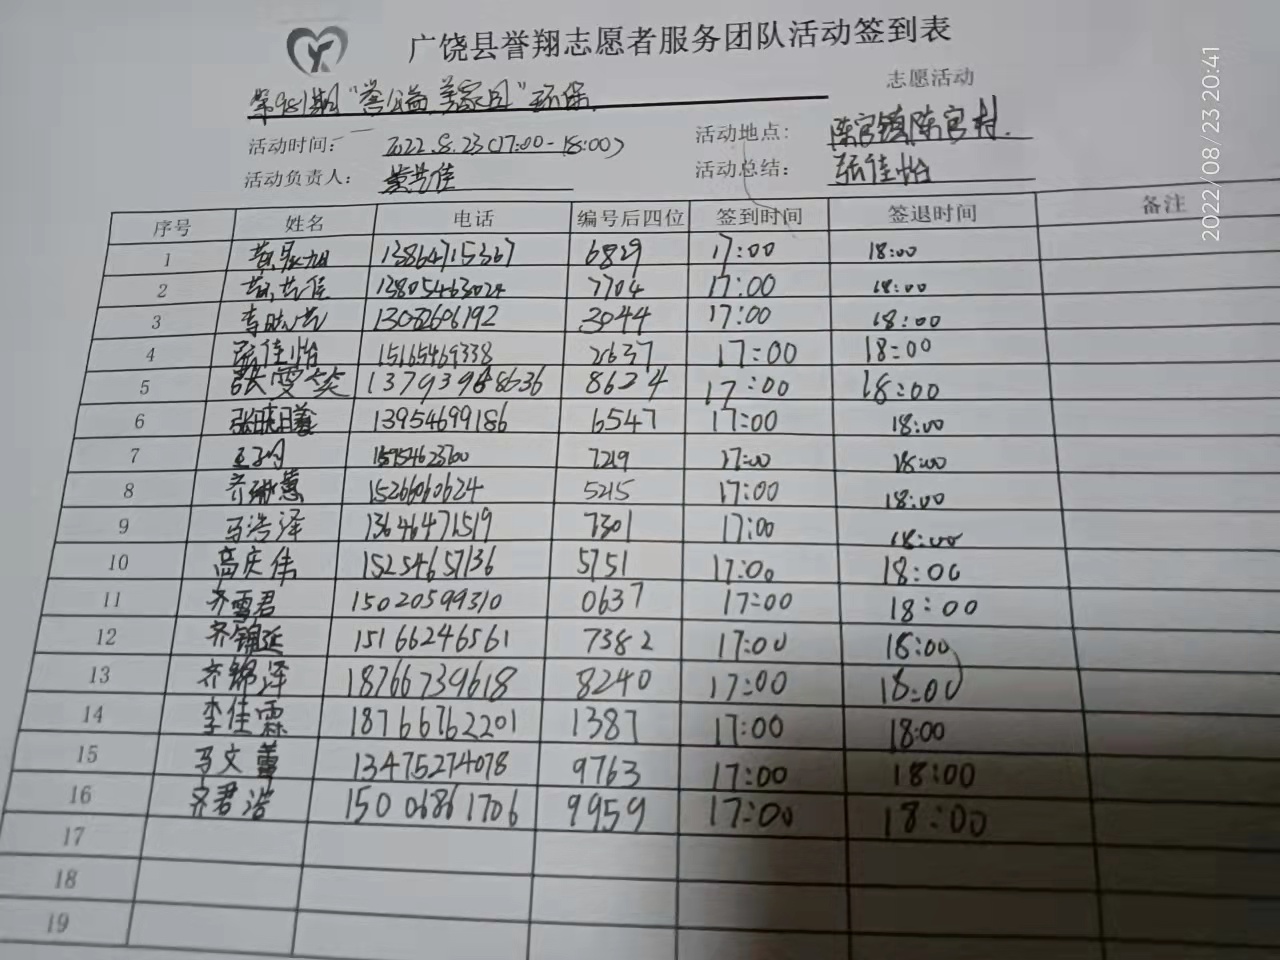 广饶县誉翔志愿者服务团队活动签到表
第981期"誉公益 美家园"环保 志愿活动
活动时间: 2022.8.23(17:00-18:00) 活动地点: 陈官镇陈官村.
活动负责人: 黄艺佳 活动总结: 张佳怡
序号 姓名 电话 编号后四位 签到时间 签退时间 备注
1 13864715367 6829 17:00 18:00
2 黄艺佳 13805463024 7704 17:00 18:00
3 13082606192 3044 17:00 18:00
4 张佳怡 15165469338 2637 17:00 18:00
5 张雯笑 8624 17:00 18:00
6 13954699186 6547 17:00 18:00
7 7219 17:00 18:00
8 15266060624 5215 17:00 18:00
9 马浩泽 13646471519 7301 17:00 18:00
10 高庆伟 15254657136 5751 17:00 18:00
11 齐雪君 15020599310 0637 17:00 18:00
12 齐锦延 15166246561 7382 17:00 18:00
13 齐锦泽 18766739618 8240 17:00 18:00
14 李佳霖 18766762201 1387 17:00 18:00
15 马文蕾 13475274078 9763 17:00 18:00
16 齐君浩 15006861706 9959 17:00 18:00
17
18
19
2022/08/23 20:41